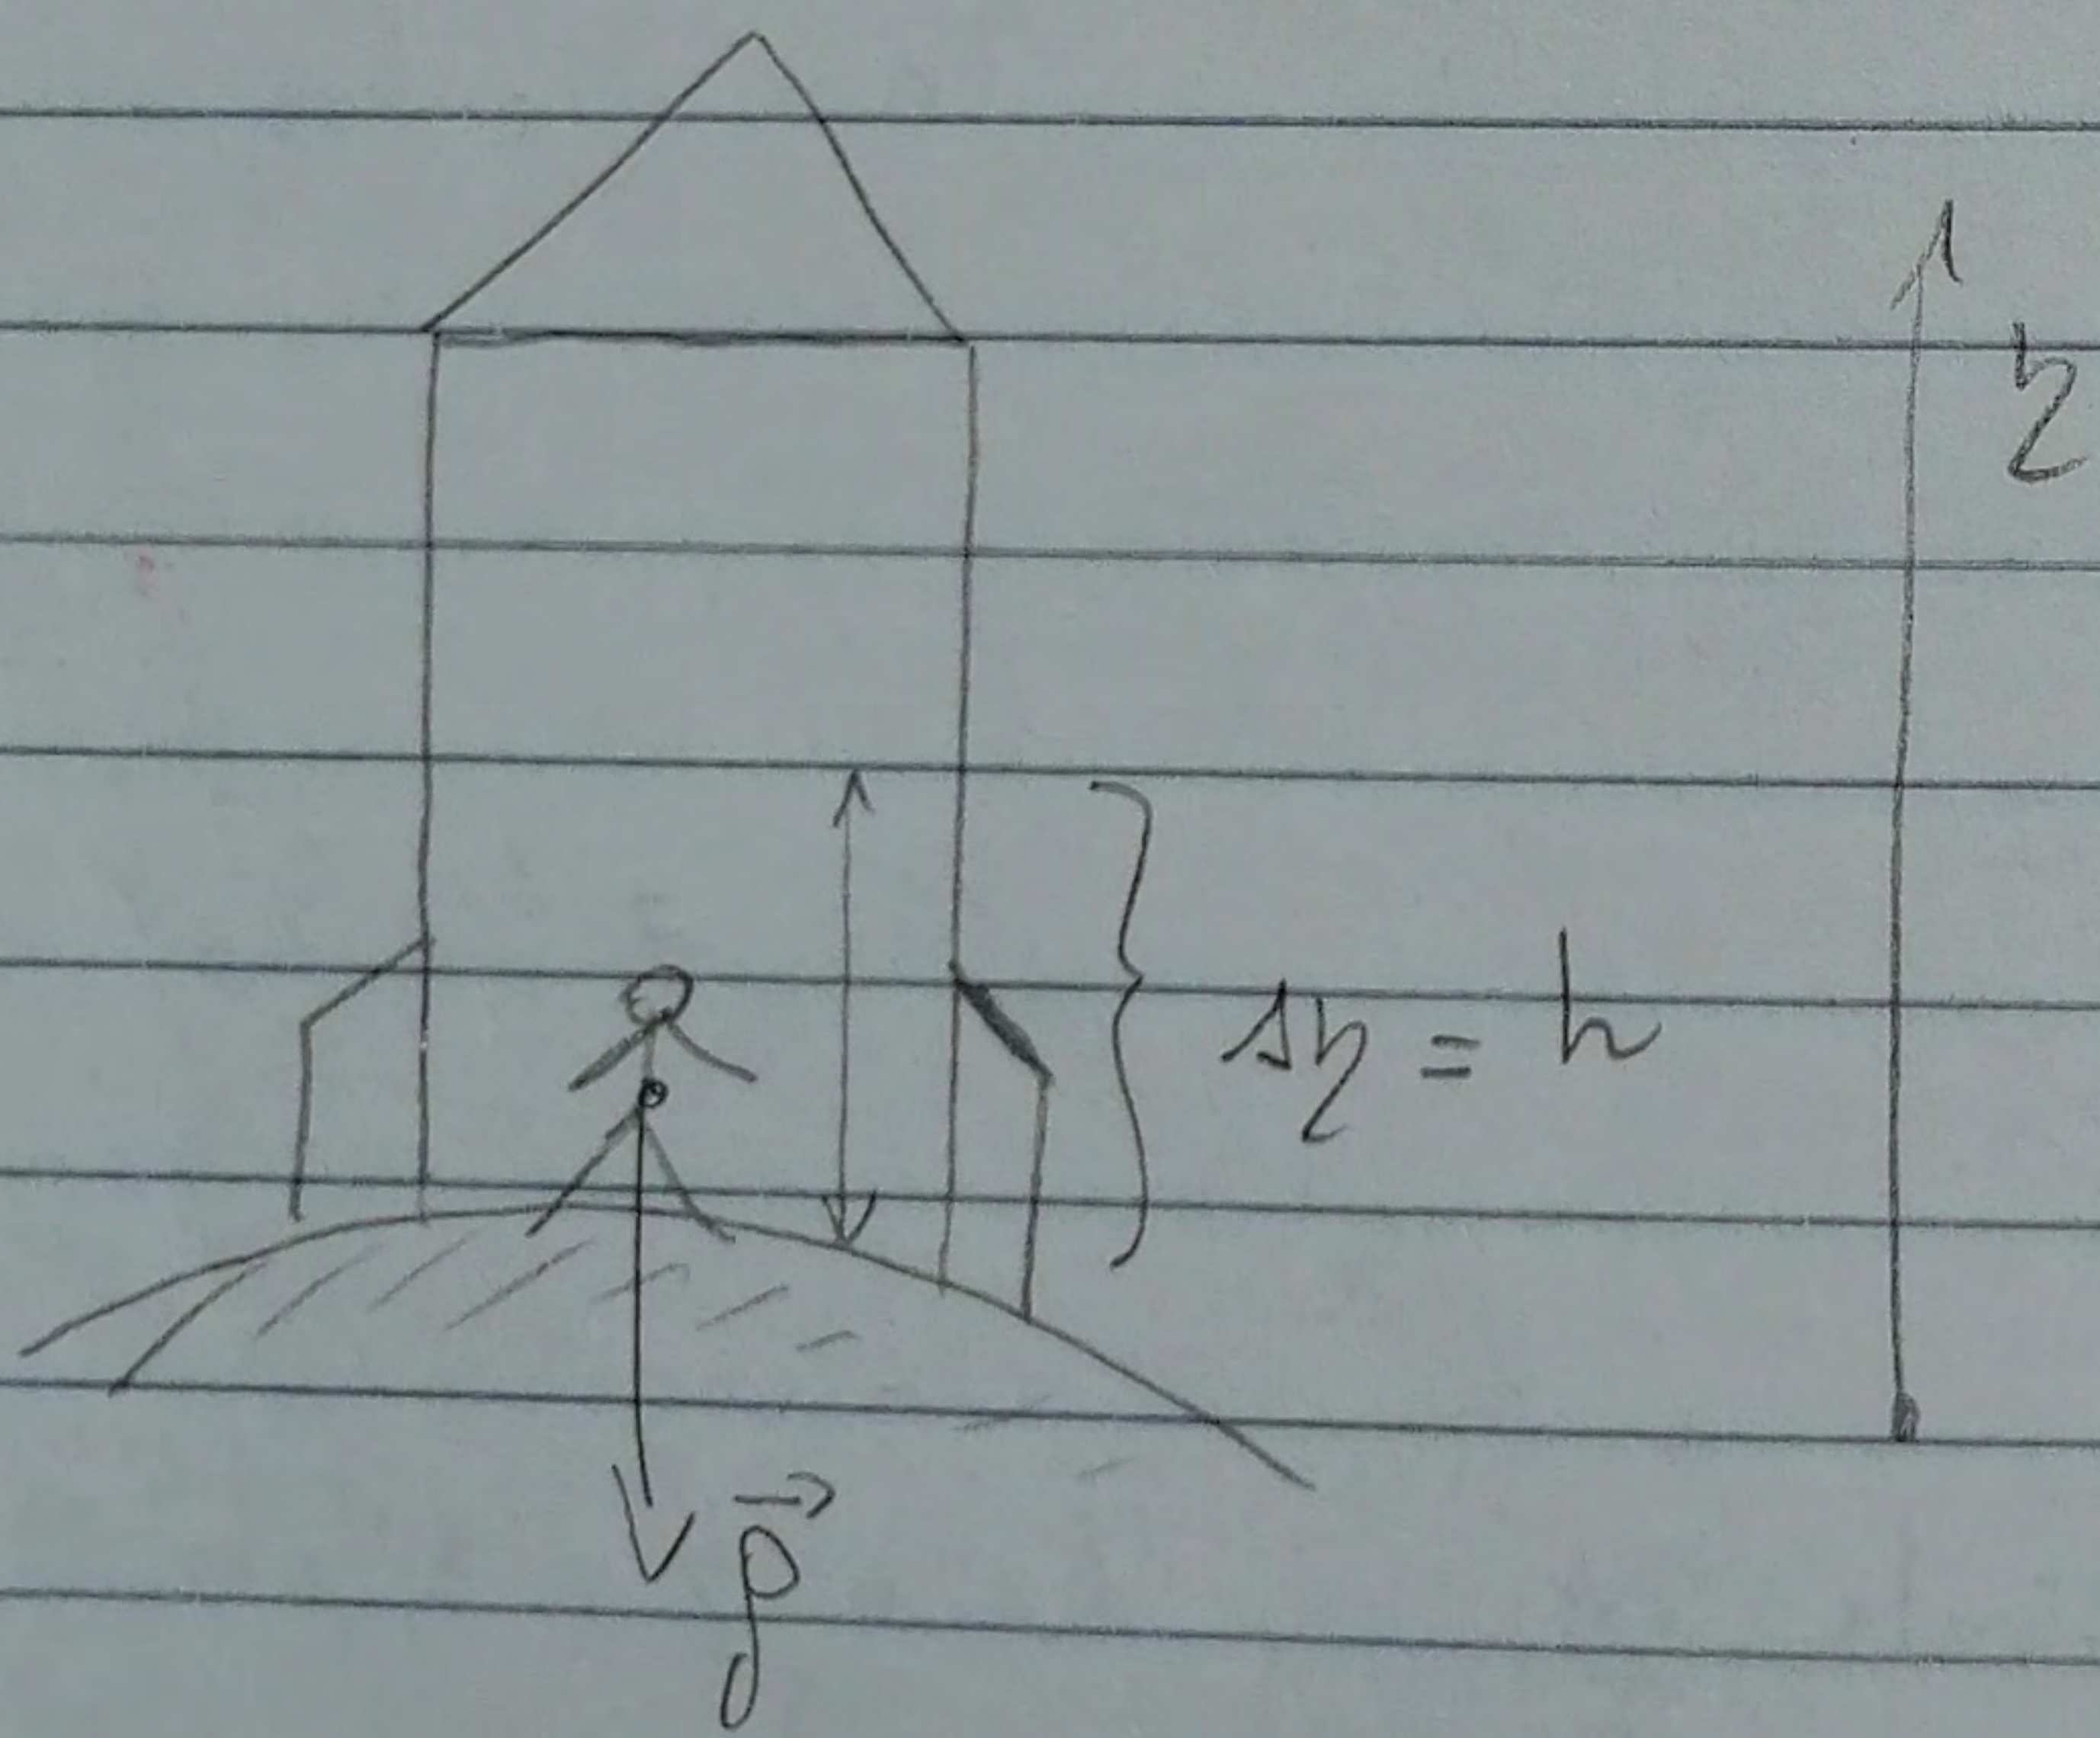 z
Δz = h
p⃗